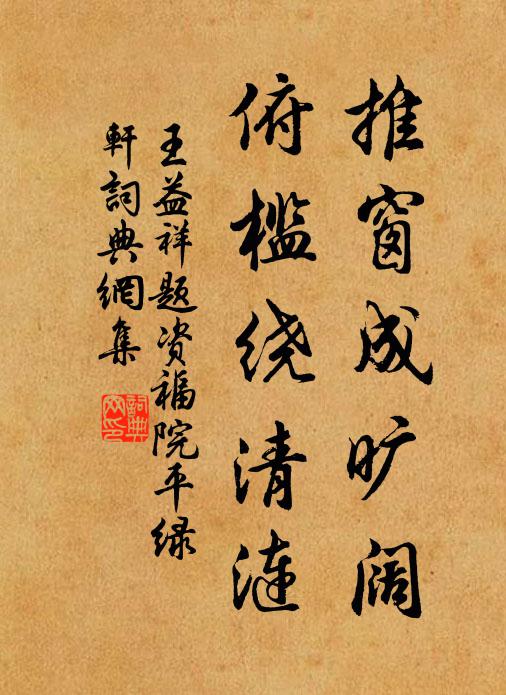 推窗成旷阔
俯槛绕清涟
王益祥题资福院平绿
軒詞典網集
詞典网印